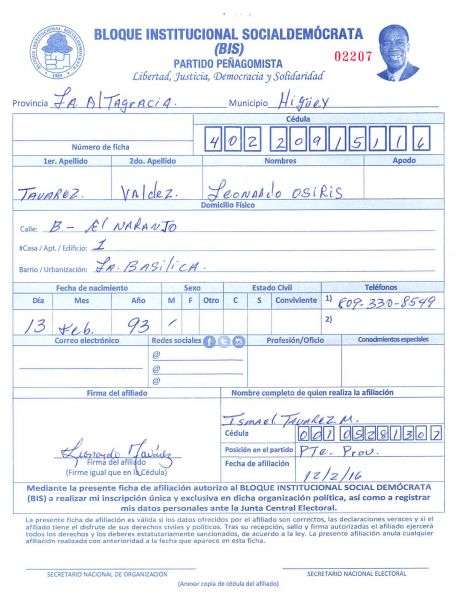 BLOQUE INSTITUCIONAL SOCIALDEMÓCRATA
(BIS)
PARTIDO PEÑAGOMISTA
Libertad, Justicia, Democracia y Solidaridad
02207
Provincia La Altagracia. Municipio Higüey
Cédula
Número de ficha 402 2091511 6
1er. Apellido 2do. Apellido Nombres Apodo
Tavarez. Valdez. Leonardo Osiris
Domicilio Físico
Calle: B - El Naranjo
#Casa / Apt. / Edificio: 1
Barrio / Urbanización: La Basilica.
Fecha de nacimiento Sexo Estado Civil Teléfonos
Día Mes Año M F Otro C S Conviviente 1) 809-330-8549
13 feb. 93 ✓ 2)
Correo electrónico Redes sociales Profesión/Oficio Conocimientos especiales
@
@
@
Firma del afiliado Nombre completo de quien realiza la afiliación
Ismael Tavarez M.
Cédula 001 0528130 7
Leonardo Tavárez
Firma del afiliado
(Firme igual que en la Cédula)
Posición en el partido Pte. Prov.
Fecha de afiliación 12/2/16
Mediante la presente ficha de afiliación autorizo al BLOQUE INSTITUCIONAL SOCIAL DEMÓCRATA
(BIS) a realizar mi inscripción única y exclusiva en dicha organización política, así como a registrar
mis datos personales ante la Junta Central Electoral.
La presente ficha de afiliación es válida si los datos ofrecidos por el afiliado son correctos, las declaraciones veraces y si el
afiliado tiene el disfrute de sus derechos civiles y políticos. Tras su recepción, sello y firma autorizadas el afiliado ejercerá
todos los derechos y los deberes estatutariamente sancionados, de acuerdo a la ley. La presente afiliación anula cualquier
afiliación realizada con anterioridad a la fecha que aparece en esta ficha.
SECRETARIO NACIONAL DE ORGANIZACIÓN SECRETARIO NACIONAL ELECTORAL
(Anexar copia de cédula del afiliado)